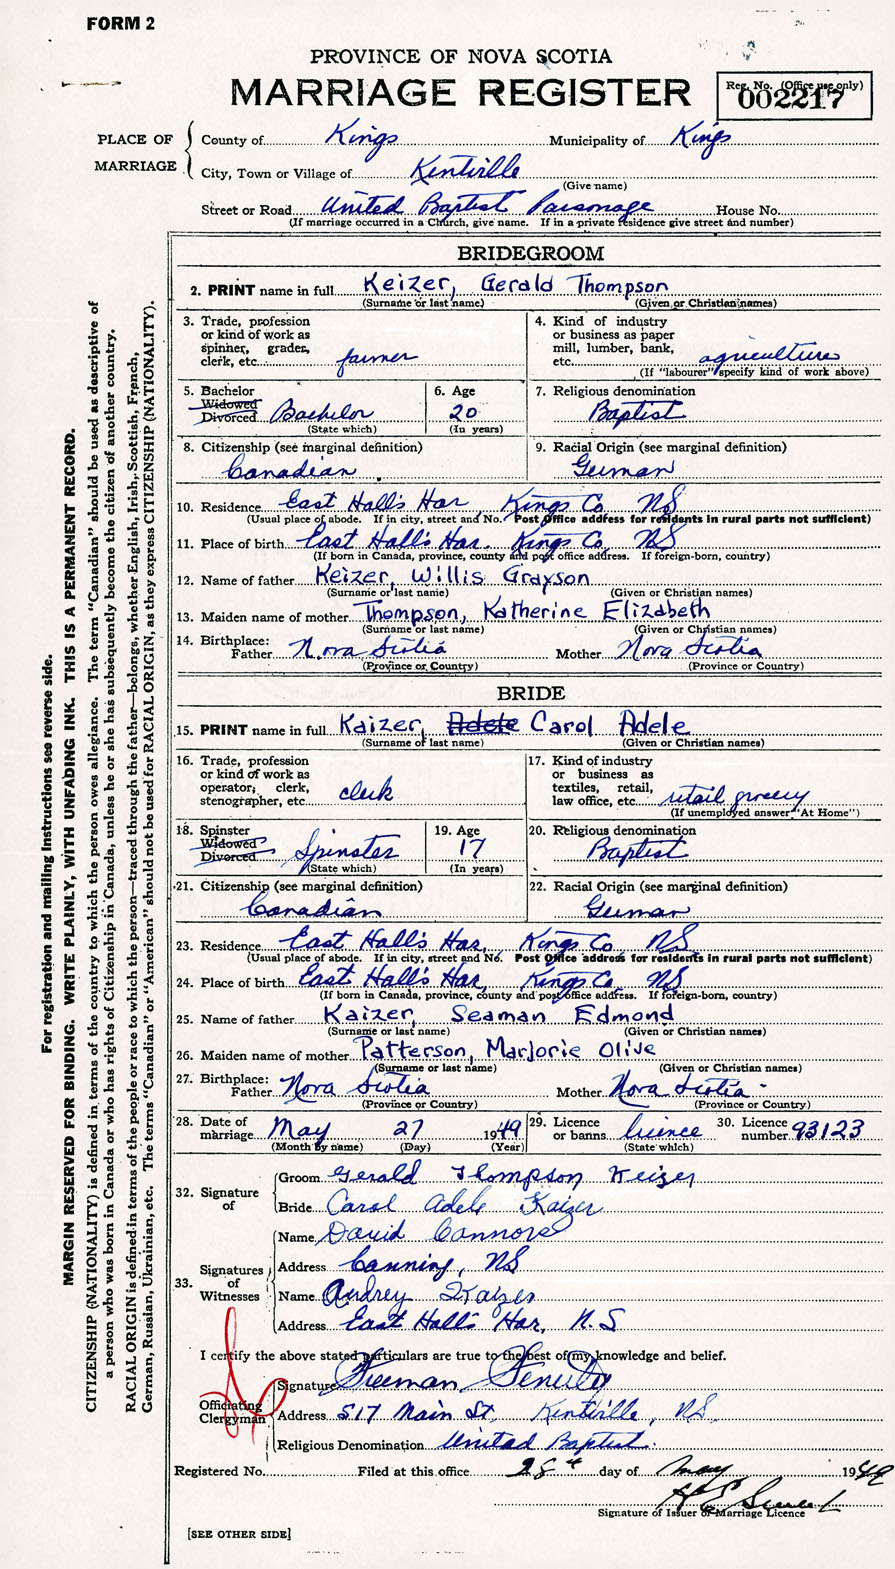 FORM 2
PROVINCE OF NOVA SCOTIA
MARRIAGE REGISTER
Reg. No. (Office use only)
002217
PLACE OF MARRIAGE
County of Kings Municipality of Kings
City, Town or Village of Kentville
(Give name)
Street or Road United Baptist Parsonage House No.
(If marriage occurred in a Church, give name. If in a private residence give street and number)
BRIDEGROOM
2. PRINT name in full Keizer, Gerald Thompson
(Surname or last name) (Given or Christian names)
3. Trade, profession
or kind of work as
spinner, grader,
clerk, etc. farmer
4. Kind of industry
or business as paper
mill, lumber, bank,
etc. agriculture
(If "labourer" specify kind of work above)
5. Bachelor
Widowed
Divorced Bachelor
(State which)
6. Age
20
(In years)
7. Religious denomination
Baptist
8. Citizenship (see marginal definition)
Canadian
9. Racial Origin (see marginal definition)
German
10. Residence East Hall's Har, Kings Co, NS
(Usual place of abode. If in city, street and No. Post Office address for residents in rural parts not sufficient)
11. Place of birth East Hall's Har. Kings Co, NS
(If born in Canada, province, county and post office address. If foreign-born, country)
12. Name of father Keizer, Willis Grayson
(Surname or last name) (Given or Christian names)
13. Maiden name of mother Thompson, Katherine Elizabeth
(Surname or last name) (Given or Christian names)
14. Birthplace:
Father Nova Scotia Mother Nova Scotia
(Province or Country) (Province or Country)
BRIDE
15. PRINT name in full Kaizer, Adele Carol Adele
(Surname of last name) (Given or Christian names)
16. Trade, profession
or kind of work as
operator, clerk,
stenographer, etc. clerk
17. Kind of industry
or business as
textiles, retail,
law office, etc. retail grocery
(If unemployed answer "At Home")
18. Spinster
Widowed
Divorced Spinster
(State which)
19. Age
17
(In years)
20. Religious denomination
Baptist
21. Citizenship (see marginal definition)
Canadian
22. Racial Origin (see marginal definition)
German
23. Residence East Hall's Har, Kings Co, NS
(Usual place of abode. If in city, street and No. Post Office address for residents in rural parts not sufficient)
24. Place of birth East Hall's Har, Kings Co, NS
(If born in Canada, province, county and post office address. If foreign-born, country)
25. Name of father Kaizer, Seaman Edmond
(Surname or last name) (Given or Christian names)
26. Maiden name of mother Patterson, Marjorie Olive
(Surname or last name) (Given or Christian names)
27. Birthplace:
Father Nova Scotia Mother Nova Scotia
(Province or Country) (Province or Country)
28. Date of
marriage May 27 1949
(Month by name) (Day) (Year)
29. Licence
or banns licence
(State which)
30. Licence
number 93123
32. Signature of
Groom Gerald Thompson Keizer
Bride Carol Adele Kaizer
33. Signatures of Witnesses
Name David Connors
Address Canning, NS
Name Audrey Kaizer
Address East Hall's Har, N.S
I certify the above stated particulars are true to the best of my knowledge and belief.
Officiating Clergyman
Signature Freeman Fenerty
Address 517 Main St, Kentville, NS.
Religious Denomination United Baptist.
Registered No. Filed at this office 28th day of May 1949
Signature of Issuer of Marriage Licence
[SEE OTHER SIDE]
For registration and mailing instructions see reverse side.
MARGIN RESERVED FOR BINDING. WRITE PLAINLY, WITH UNFADING INK. THIS IS A PERMANENT RECORD.
CITIZENSHIP (NATIONALITY) is defined in terms of the country to which the person owes allegiance. The term "Canadian" should be used as descriptive of
a person who was born in Canada or who has rights of Citizenship in Canada, unless he or she has subsequently become the citizen of another country.
RACIAL ORIGIN is defined in terms of the people or race to which the person—traced through the father—belongs, whether English, Irish, Scottish, French,
German, Russian, Ukrainian, etc. The terms "Canadian" or "American" should not be used for RACIAL ORIGIN, as they express CITIZENSHIP (NATIONALITY).